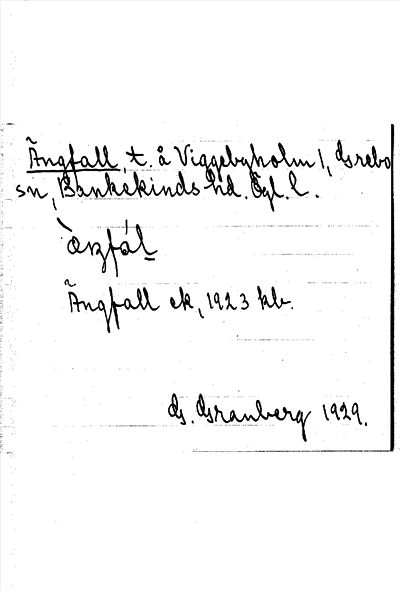 Ängfall t. å Viggebyholm 1, Grebo
sn, Bankekinds hd. Ögl. l.
Ängfall ek, 1923 kb.
G. Granberg 1929.